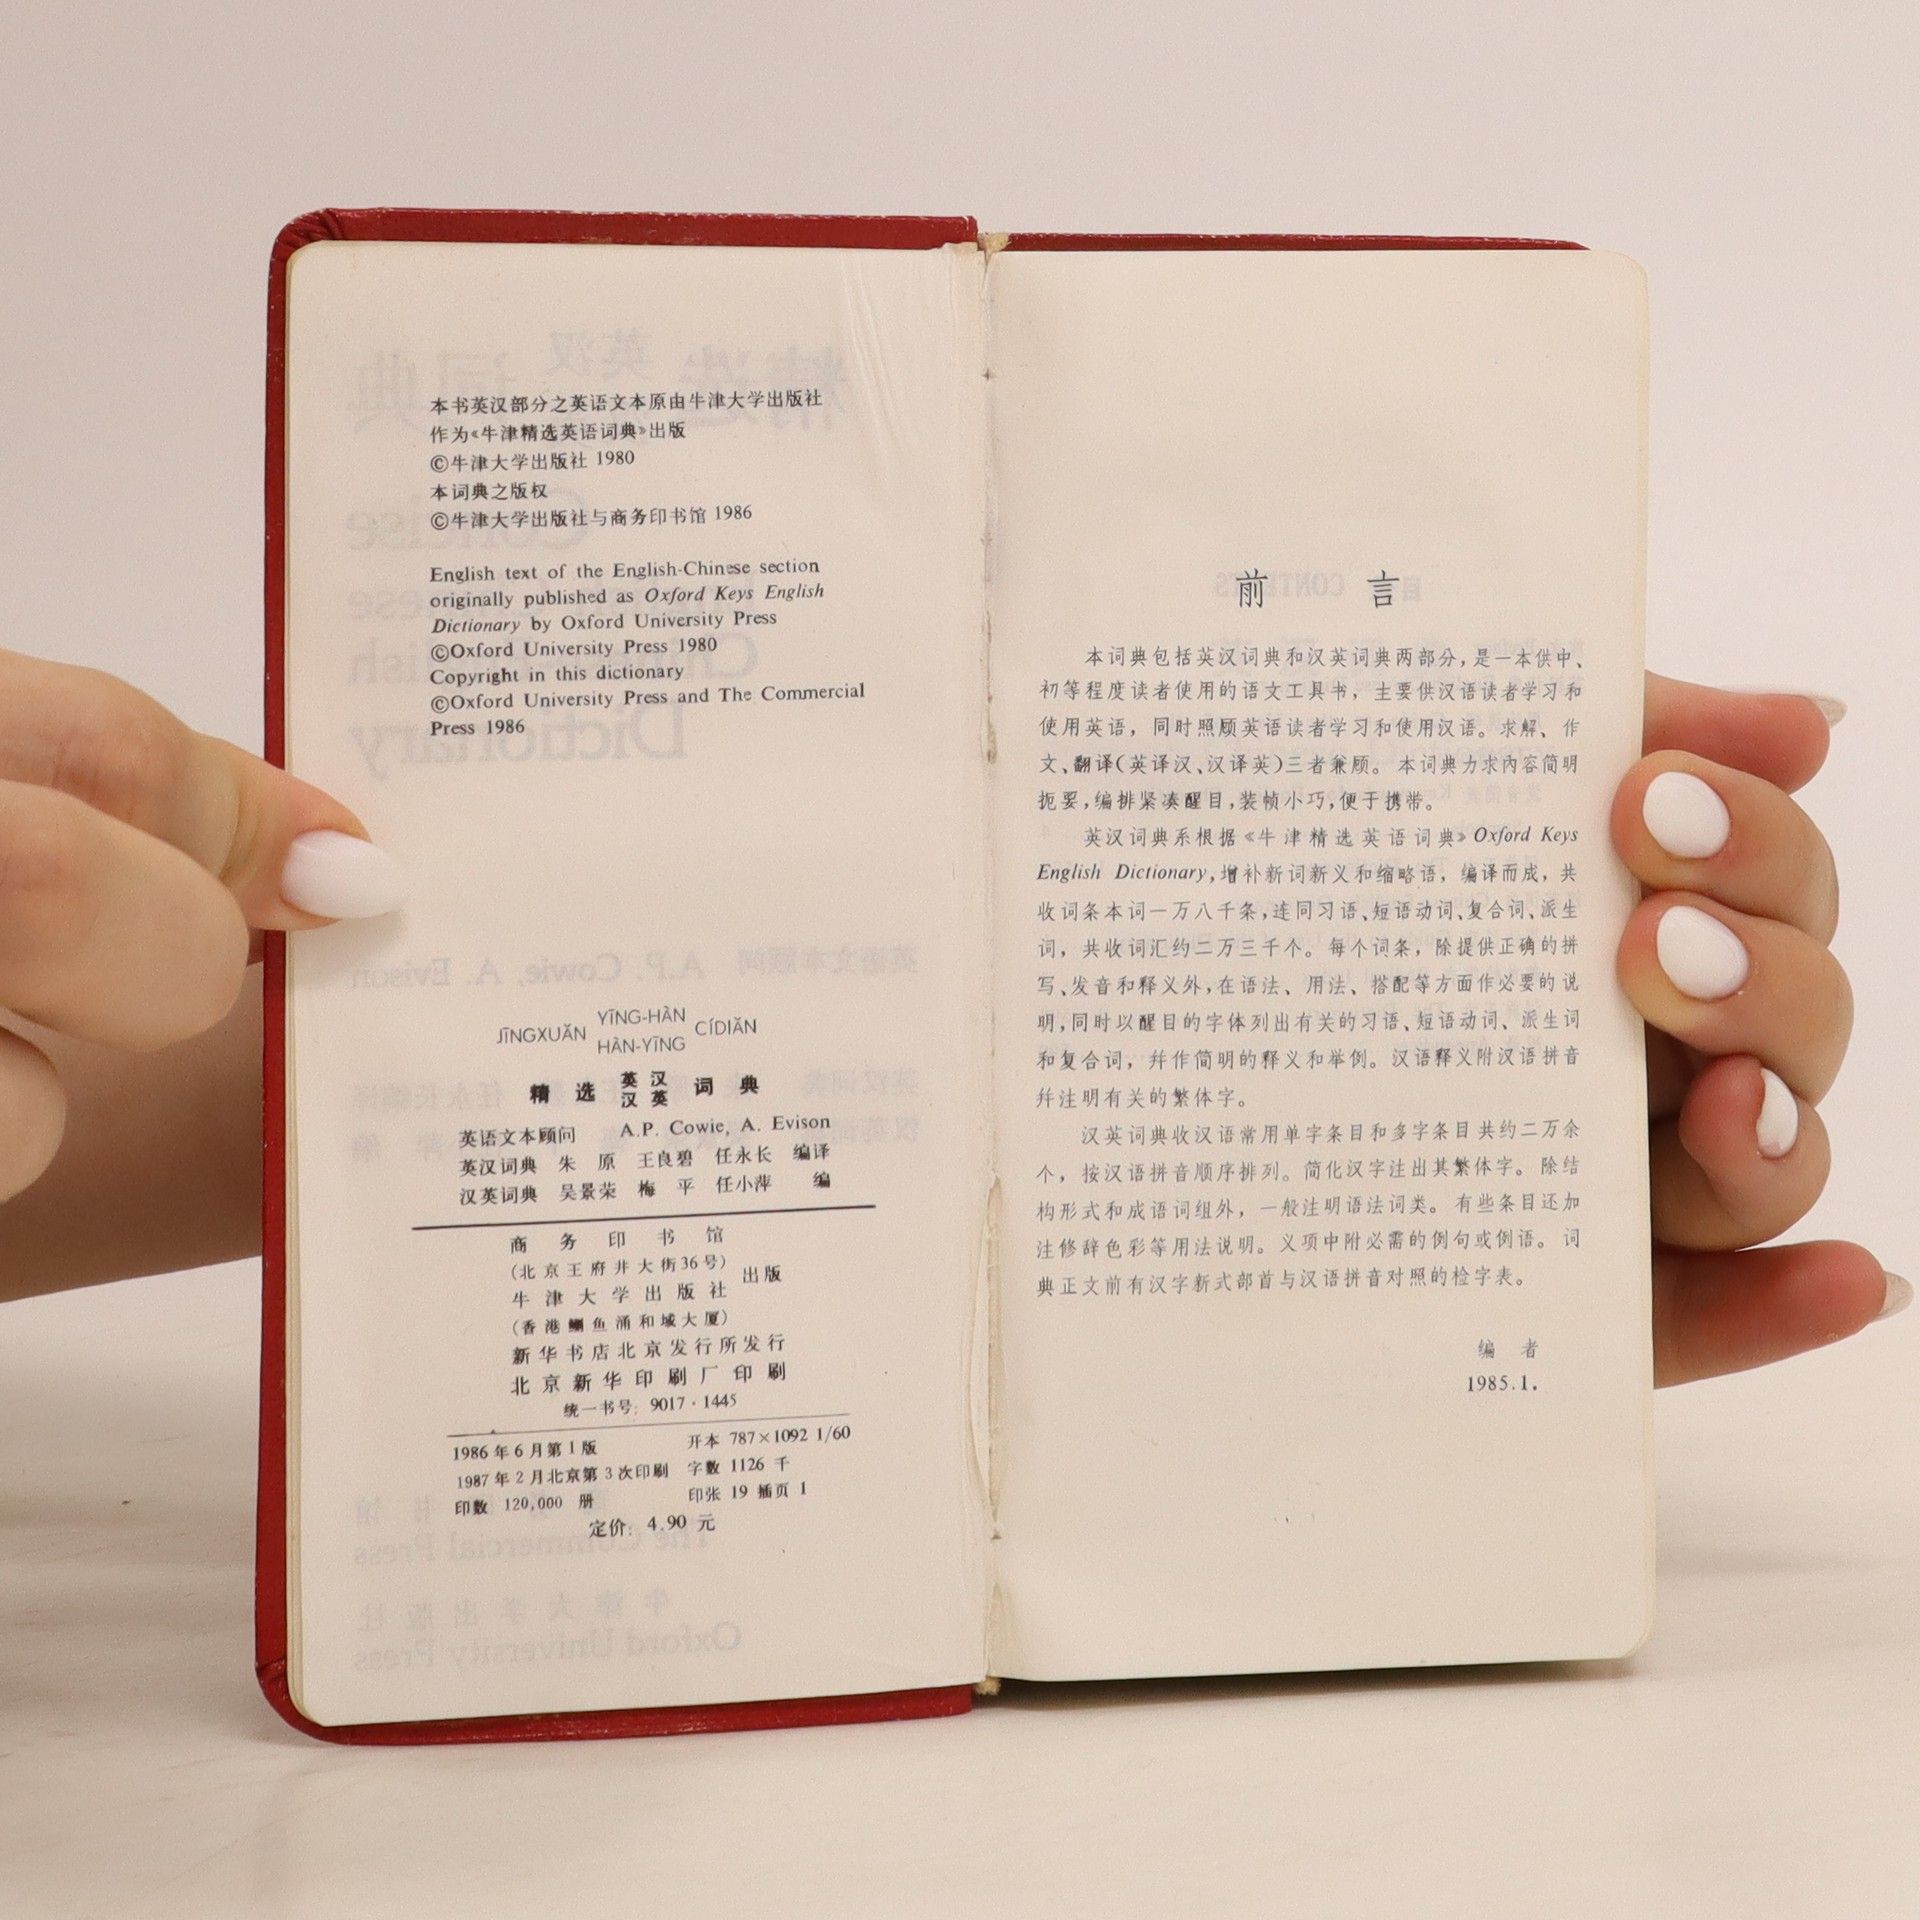 本书英汉部分之英语文本原由牛津大学出版社
作为《牛津精选英语词典》出版
©牛津大学出版社 1980
本词典之版权
©牛津大学出版社与商务印书馆 1986
English text of the English-Chinese section
originally published as Oxford Keys English
Dictionary by Oxford University Press
©Oxford University Press 1980
Copyright in this dictionary
©Oxford University Press and The Commercial
Press 1986
JĪNGXUĂN YĪNG-HÀN HÀN-YĪNG CÍDIĂN
精选 英汉 汉英 词典
英语文本顾问 A.P. Cowie, A. Evison
英汉词典 朱 原 王良碧 任永长 编译
汉英词典 吴景荣 梅 平 任小萍 编
商务印书馆
(北京王府井大街36号)
牛津大学出版社 出版
(香港鲗鱼涌和域大厦)
新华书店北京发行所发行
北京新华印刷厂印刷
统一书号: 9017·1445
1986年6月第1版 开本 787×1092 1/60
1987年2月北京第3次印刷 字数 1126 千
印数 120,000 册 印张 19 插页 1
定价: 4.90 元
前 言
本词典包括英汉词典和汉英词典两部分,是一本供中、
初等程度读者使用的语文工具书,主要供汉语读者学习和
使用英语,同时照顾英语读者学习和使用汉语。求解、作
文、翻译(英译汉、汉译英)三者兼顾。本词典力求内容简明
扼要,编排紧凑醒目,装帧小巧,便于携带。
英汉词典系根据《牛津精选英语词典》Oxford Keys
English Dictionary,增补新词新义和缩略语,编译而成,共
收词条本词一万八千条,连同习语、短语动词、复合词、派生
词,共收词汇约二万三千个。每个词条,除提供正确的拼
写、发音和释义外,在语法、用法、搭配等方面作必要的说
明,同时以醒目的字体列出有关的习语、短语动词、派生词
和复合词,并作简明的释义和举例。汉语释义附汉语拼音
并注明有关的繁体字。
汉英词典收汉语常用单字条目和多字条目共约二万余
个,按汉语拼音顺序排列。简化汉字注出其繁体字。除结
构形式和成语词组外,一般注明语法词类。有些条目还加
注修辞色彩等用法说明。义项中附必需的例句或例语。词
典正文前有汉字新式部首与汉语拼音对照的检字表。
编 者
1985.1.